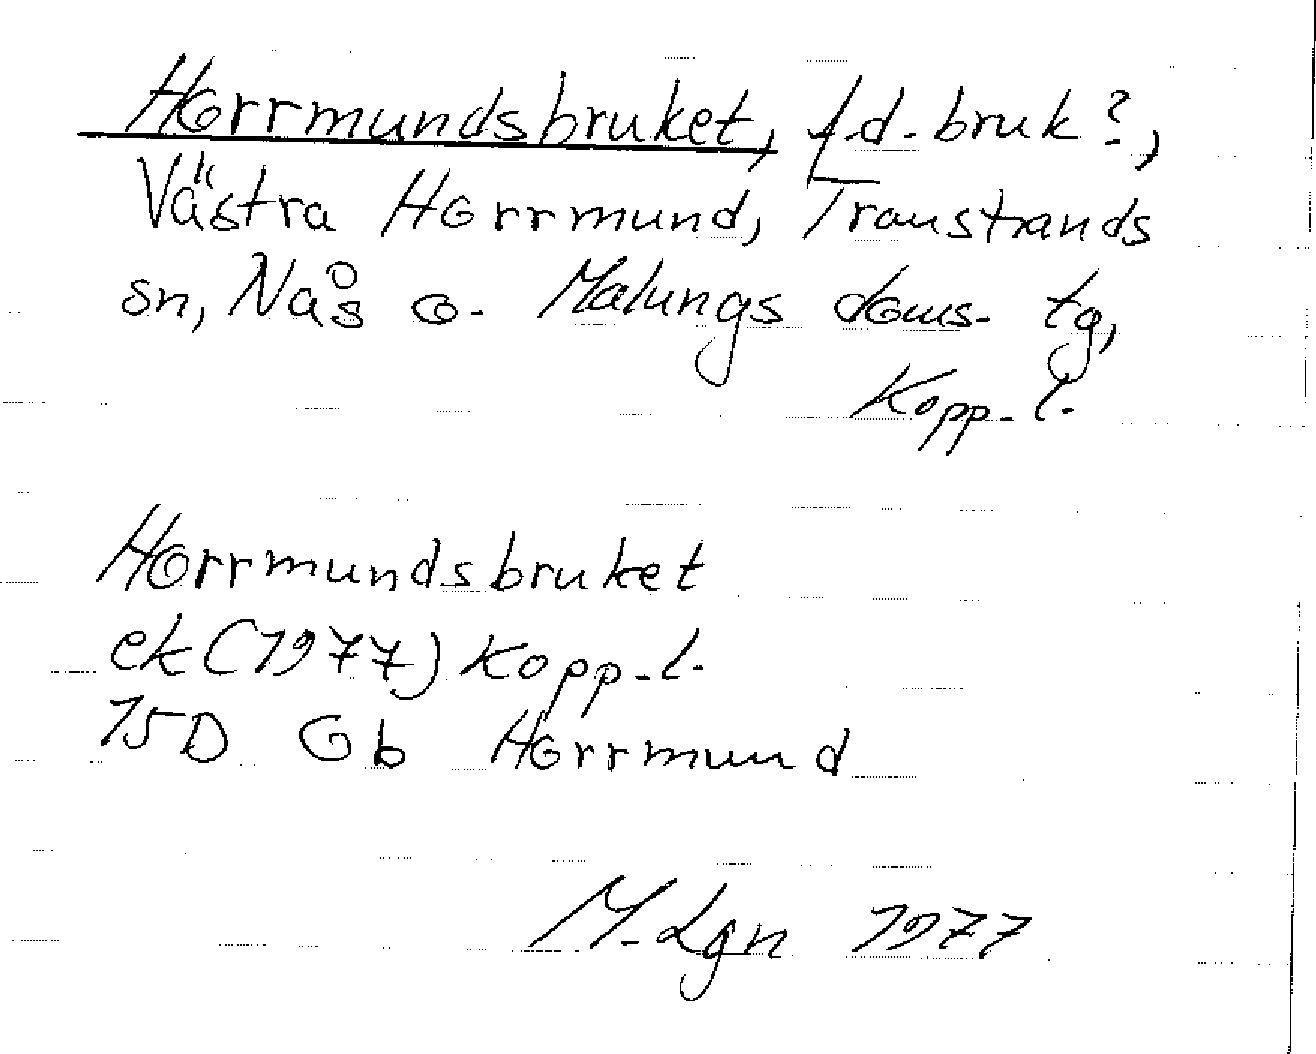 Horrmundsbruket, f.d. bruk?,
Västra Horrmund, Transtrands
sn, Nås o. Malungs doms. tg,
Kopp. l.
Horrmundsbruket
ek (1977) Kopp. l.
15D Gb Horrmund
M. Lgn 1977